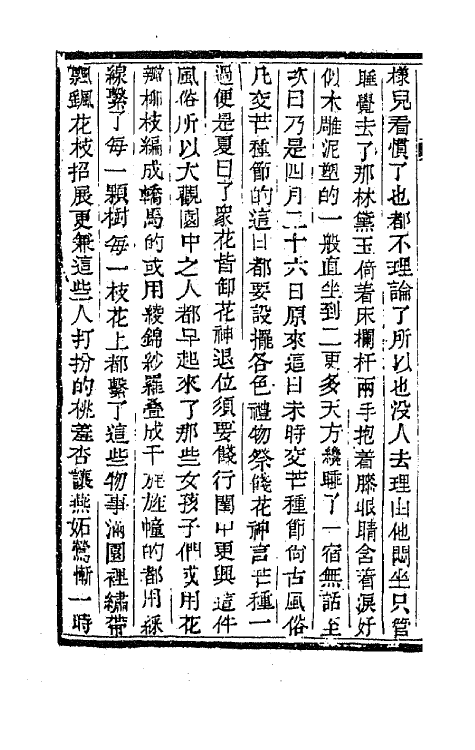 樣兒看慣了也都不理論了所以也没人去理由他悶坐只管
睡覺去了那林黛玉倚着床欄杆兩手抱着膝眼睛含着淚好
似木雕泥塑的一般直坐到二更多天方纔睡了一宿無話至
次日乃是四月二十六日原來這日未時交芒種節尙古風俗
凡交芒種節的這日都要設擺各色禮物祭餞花神言芒種一
過便是夏日了衆花皆卸花神退位須要餞行閨中更興這件
風俗所以大觀園中之人都早起來了那些女孩子們或用花
瓣柳枝編成轎馬的或用綾錦紗羅疊成干旄旌幢的都用綵
線繫了每一顆樹每一枝花上都繫了這些物事滿園裡繡帶
飄颻花枝招展更兼這些人打扮的桃羞杏讓燕妬鶯慚一時